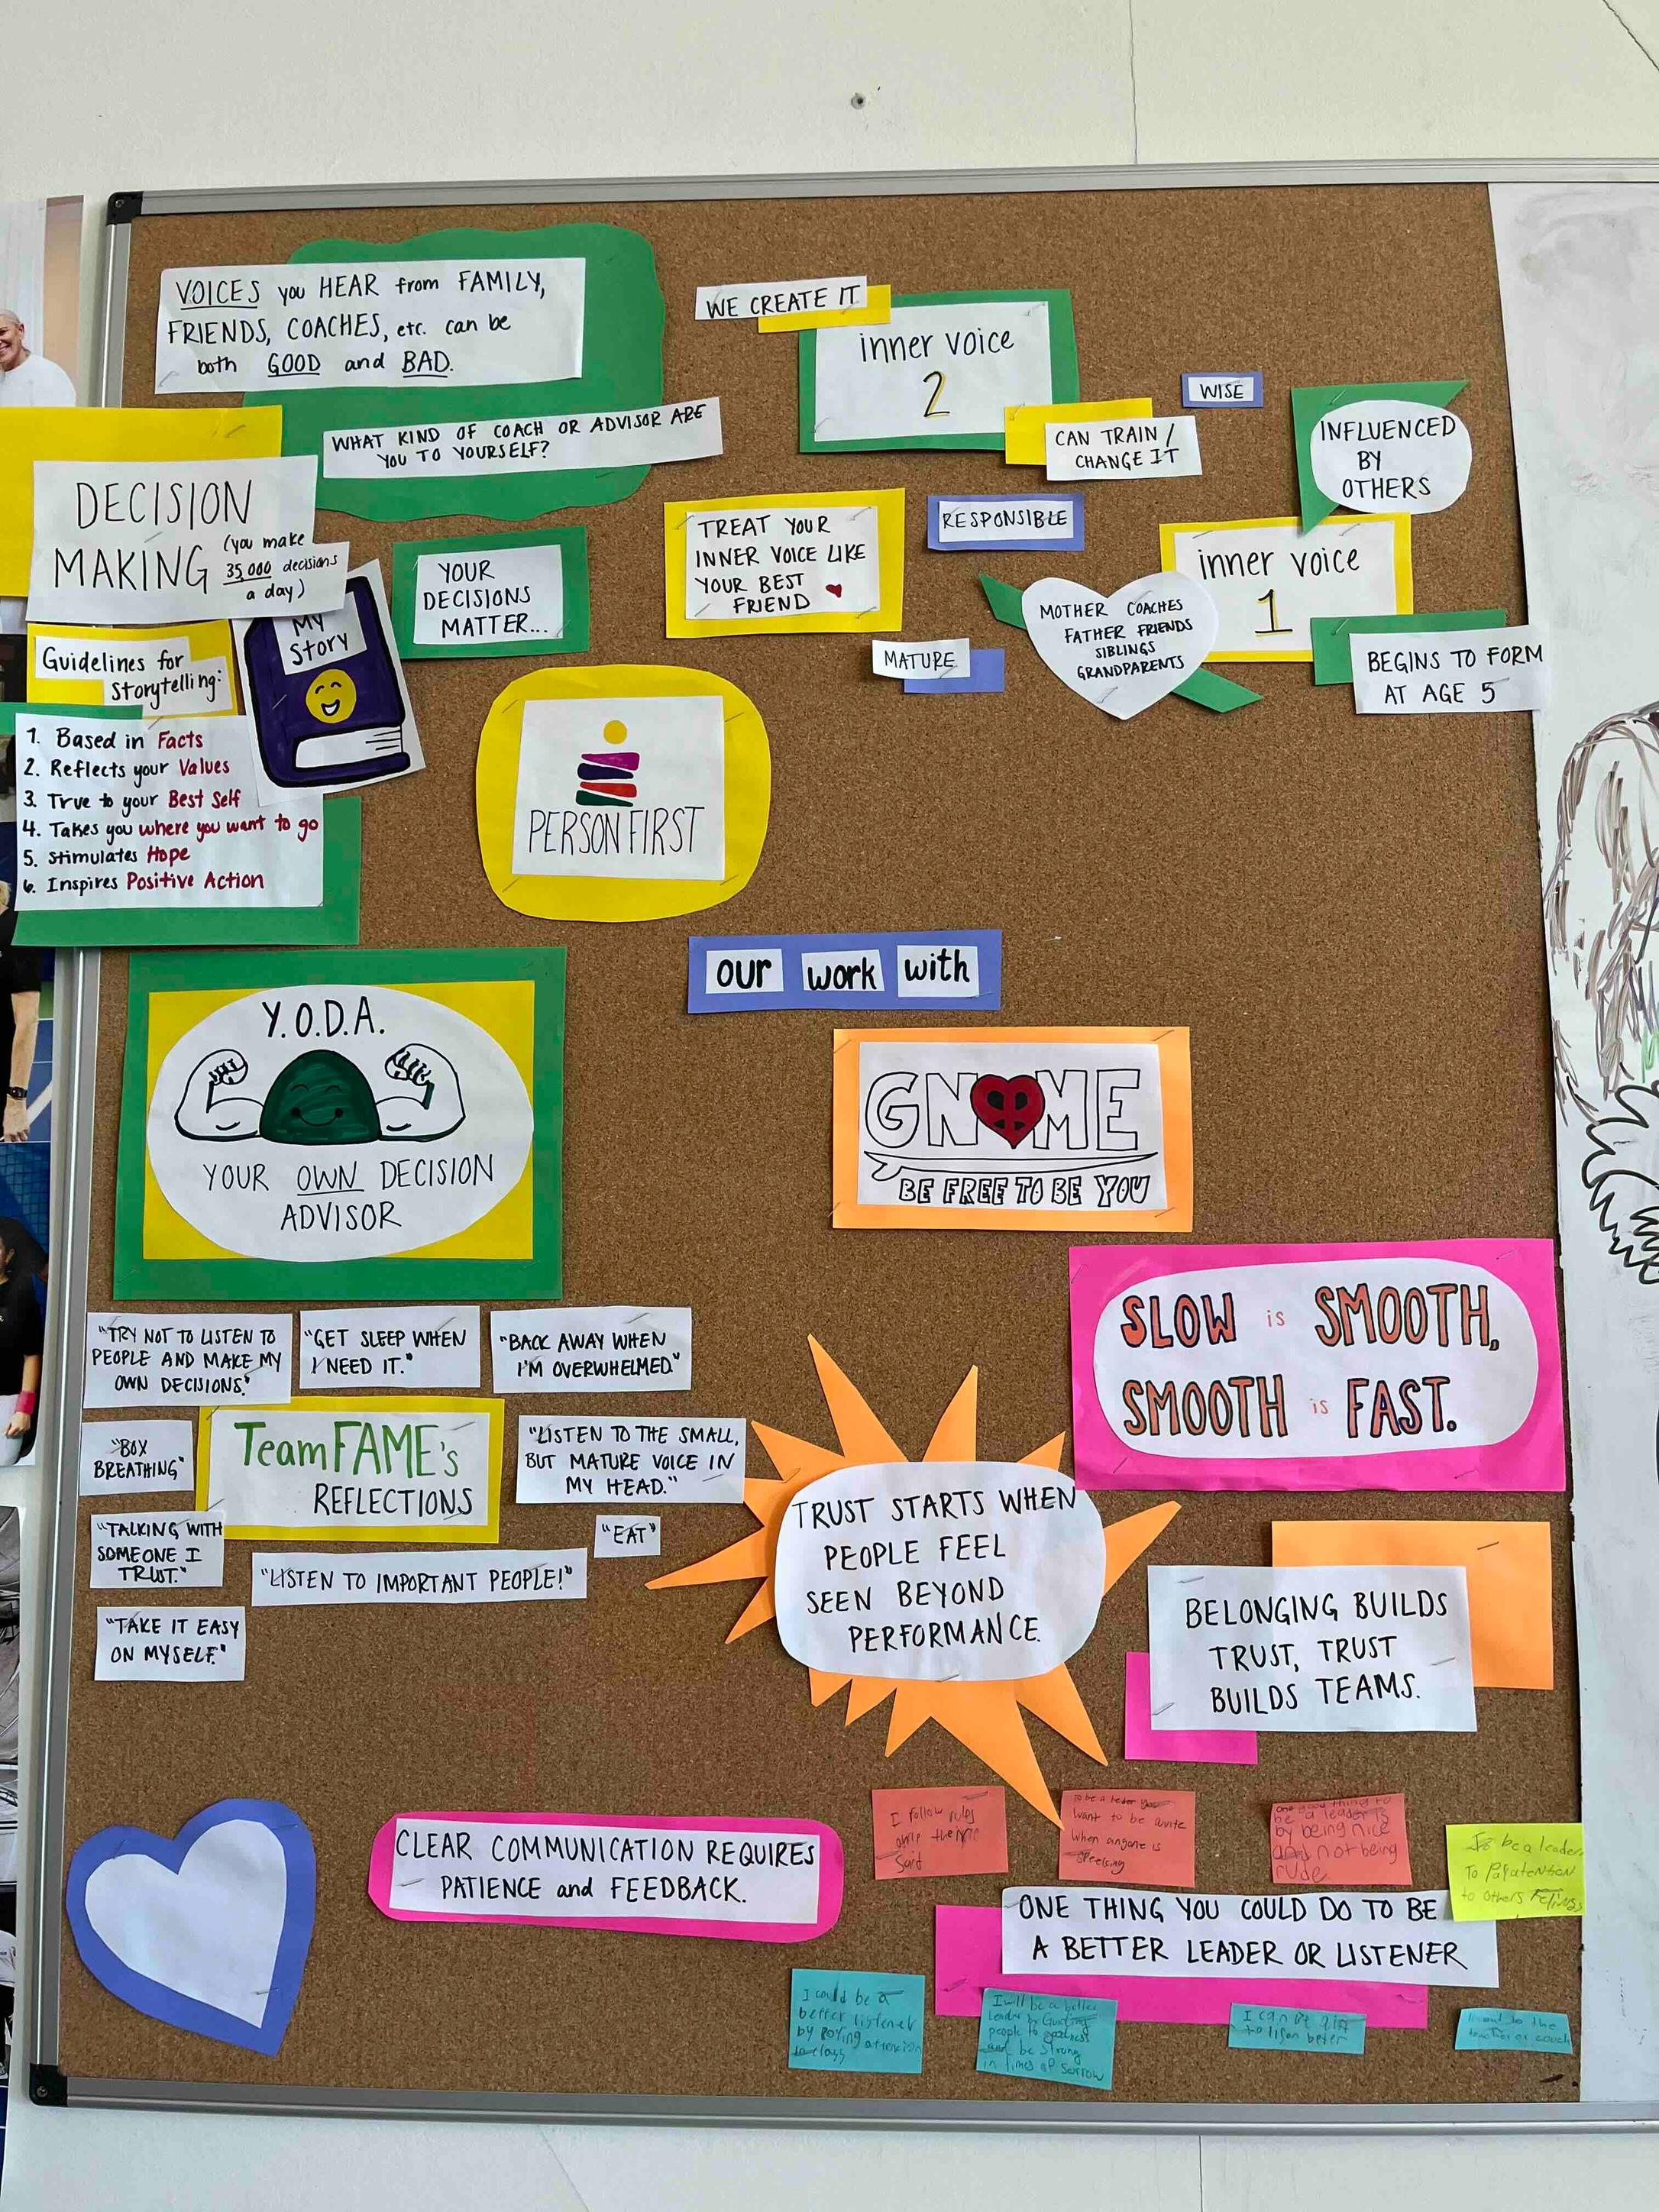 VOICES you HEAR from FAMILY,
FRIENDS, COACHES, etc. can be
both GOOD and BAD.
WHAT KIND OF COACH OR ADVISOR ARE
YOU TO YOURSELF?
WE CREATE IT
inner voice
2
CAN TRAIN /
CHANGE IT
WISE
INFLUENCED
BY
OTHERS
DECISION
MAKING
(you make
35,000 decisions
a day)
YOUR
DECISIONS
MATTER...
TREAT YOUR
INNER VOICE LIKE
YOUR BEST
FRIEND
RESPONSIBLE
inner voice
1
MOTHER COACHES
FATHER FRIENDS
SIBLINGS
GRANDPARENTS
MATURE
BEGINS TO FORM
AT AGE 5
MY
Story
Guidelines for
Storytelling:
1. Based in Facts
2. Reflects your Values
3. True to your Best Self
4. Takes you where you want to go
5. Stimulates Hope
6. Inspires Positive Action
PERSON FIRST
our work with
GNOME
BE FREE TO BE YOU
Y.O.D.A.
YOUR OWN DECISION
ADVISOR
SLOW is SMOOTH,
SMOOTH is FAST.
"TRY NOT TO LISTEN TO
PEOPLE AND MAKE MY
OWN DECISIONS."
"GET SLEEP WHEN
I NEED IT."
"BACK AWAY WHEN
I'M OVERWHELMED"
"BOX
BREATHING"
TeamFAME's
REFLECTIONS
"LISTEN TO THE SMALL,
BUT MATURE VOICE IN
MY HEAD."
"TALKING WITH
SOMEONE I
TRUST."
"LISTEN TO IMPORTANT PEOPLE!"
"EAT"
"TAKE IT EASY
ON MYSELF."
TRUST STARTS WHEN
PEOPLE FEEL
SEEN BEYOND
PERFORMANCE.
BELONGING BUILDS
TRUST, TRUST
BUILDS TEAMS.
CLEAR COMMUNICATION REQUIRES
PATIENCE and FEEDBACK.
I follow rules
To be a leader
want to be
when anyone is
one good thing to
be a leader is
by being nice
and not being
rude
be a leader
To
to others
ONE THING YOU COULD DO TO BE
A BETTER LEADER OR LISTENER
I could be a
better listener
by
I will be a better
leader by
people to
and be strong
in times of sorrow
I can
better
the
teacher or coach